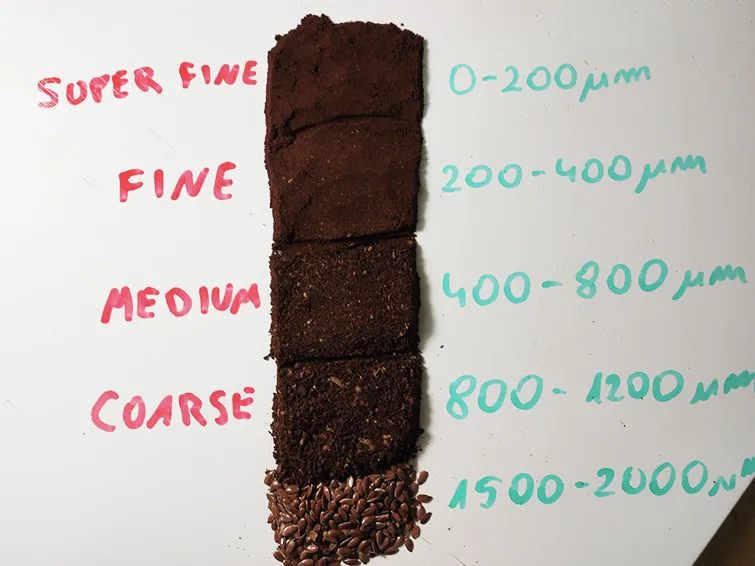 SUPER FINE 0-200µm
FINE 200-400µm
MEDIUM 400-800µm
COARSE 800-1200µm
1500-2000µm